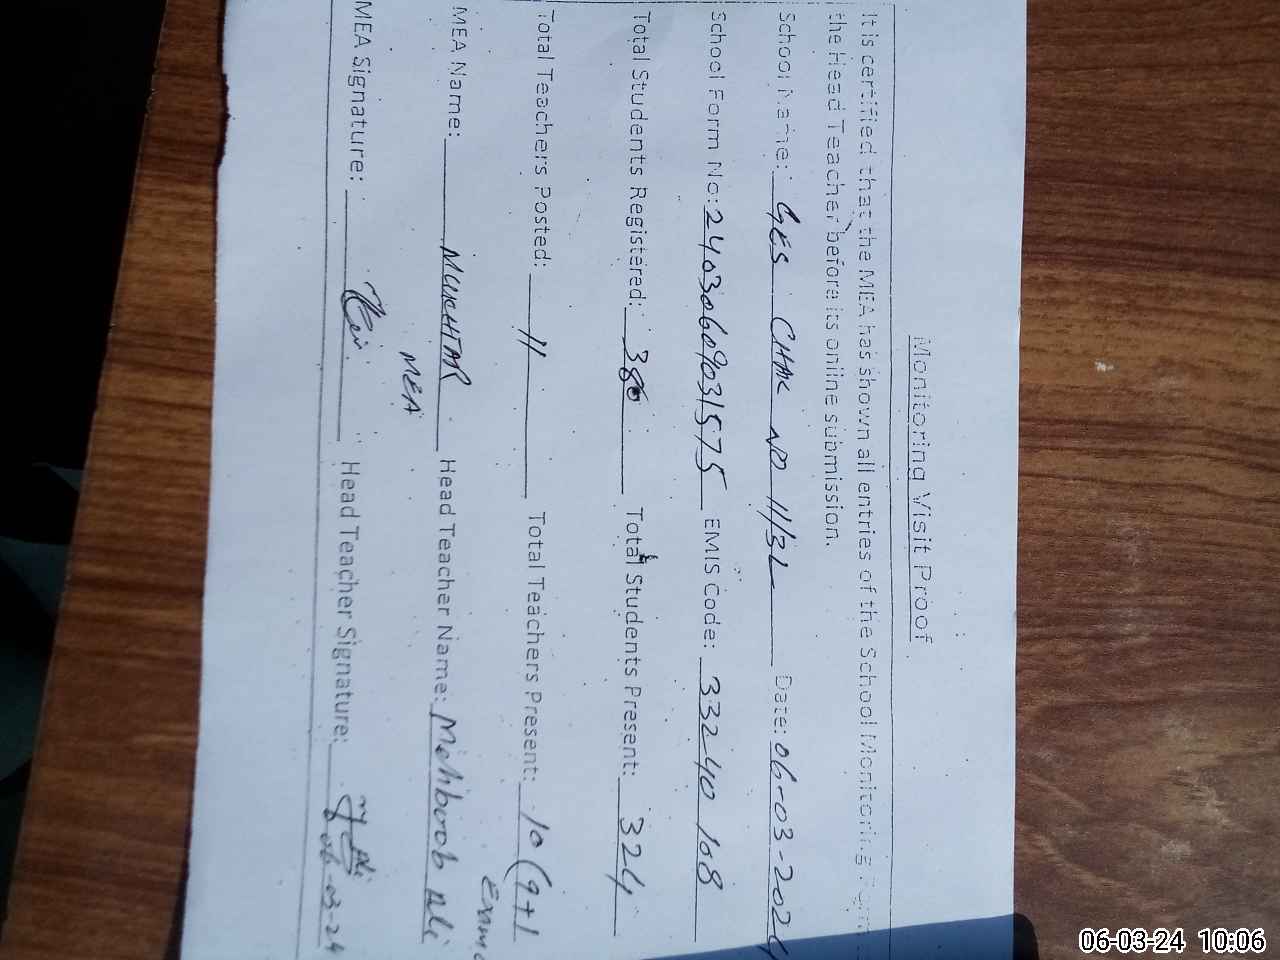 Monitoring Visit Proof
It is certified that the MEA has shown all entries of the School Monitoring Form
the Head Teacher before its online submission.
School Name: GES CHAK NO 11/3L Date: 06-03-2024
School Form No: 24030609031575 EMIS Code: 33240108
Total Students Registered: 380 Total Students Present: 324
Total Teachers Posted: 11 Total Teachers Present: 10 (9+1
Exam
MEA Name: MUKHTAR Head Teacher Name: Mehboob Ali
MEA
MEA Signature: Head Teacher Signature:
06-03-24
06-03-24 10:06